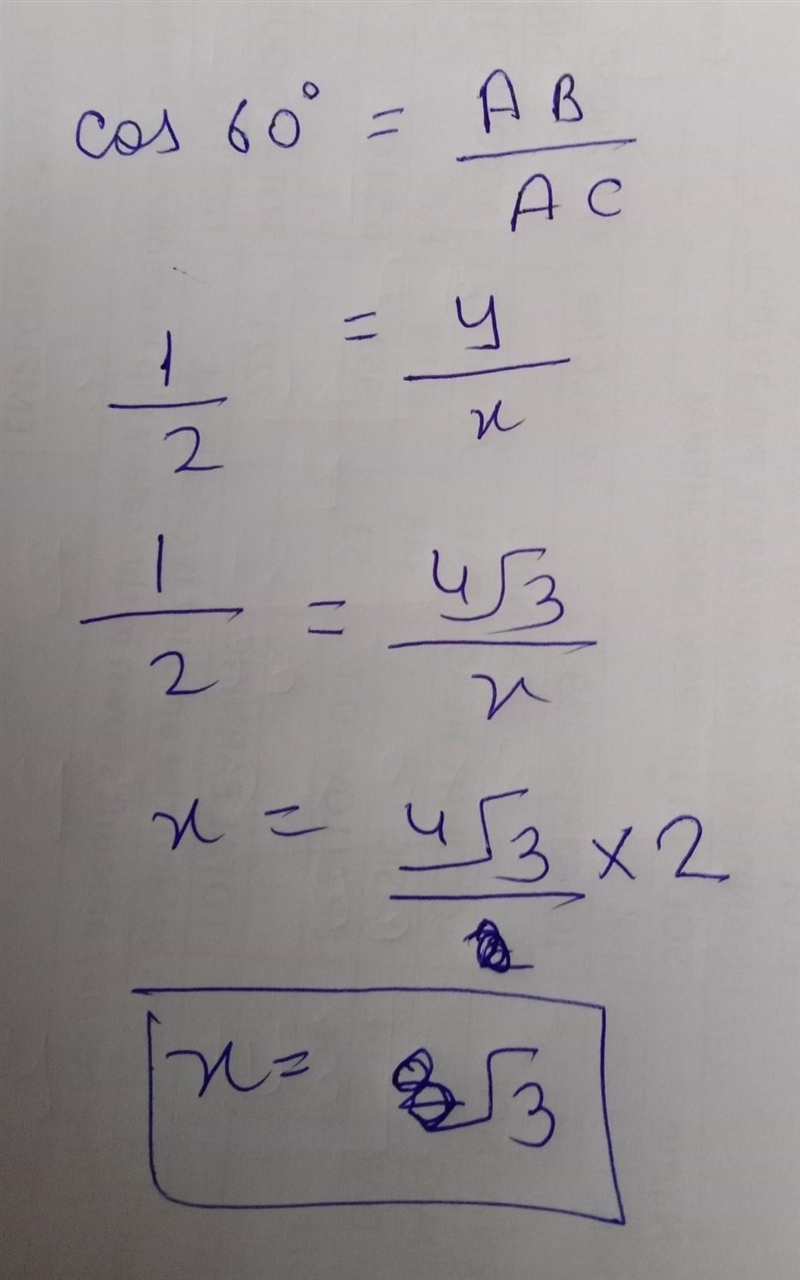 cos 60° = AB / AC
1/2 = y/x
1/2 = 4√3 / x
x = 4√3 / × 2
x = 8√3